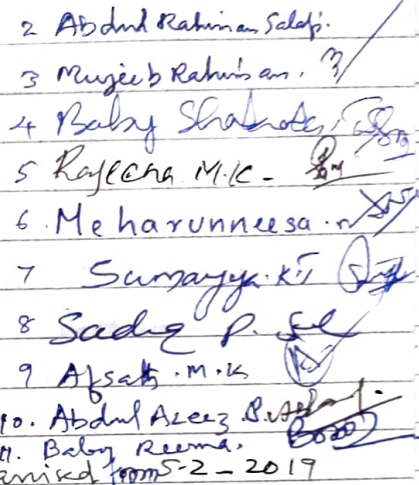 2 Abdul Rahiman Salafi.
3 Mujeeb Rahiman.
4 Baby Shabnota,
5 Rajeena M.K-
6 Meharunneesa.n
7 Sumayya.KT
8 Sadiq P.
9 Afsal.M.K
10. Abdul Azeez.P.
11. Baby Reema.
from 5-2-2019